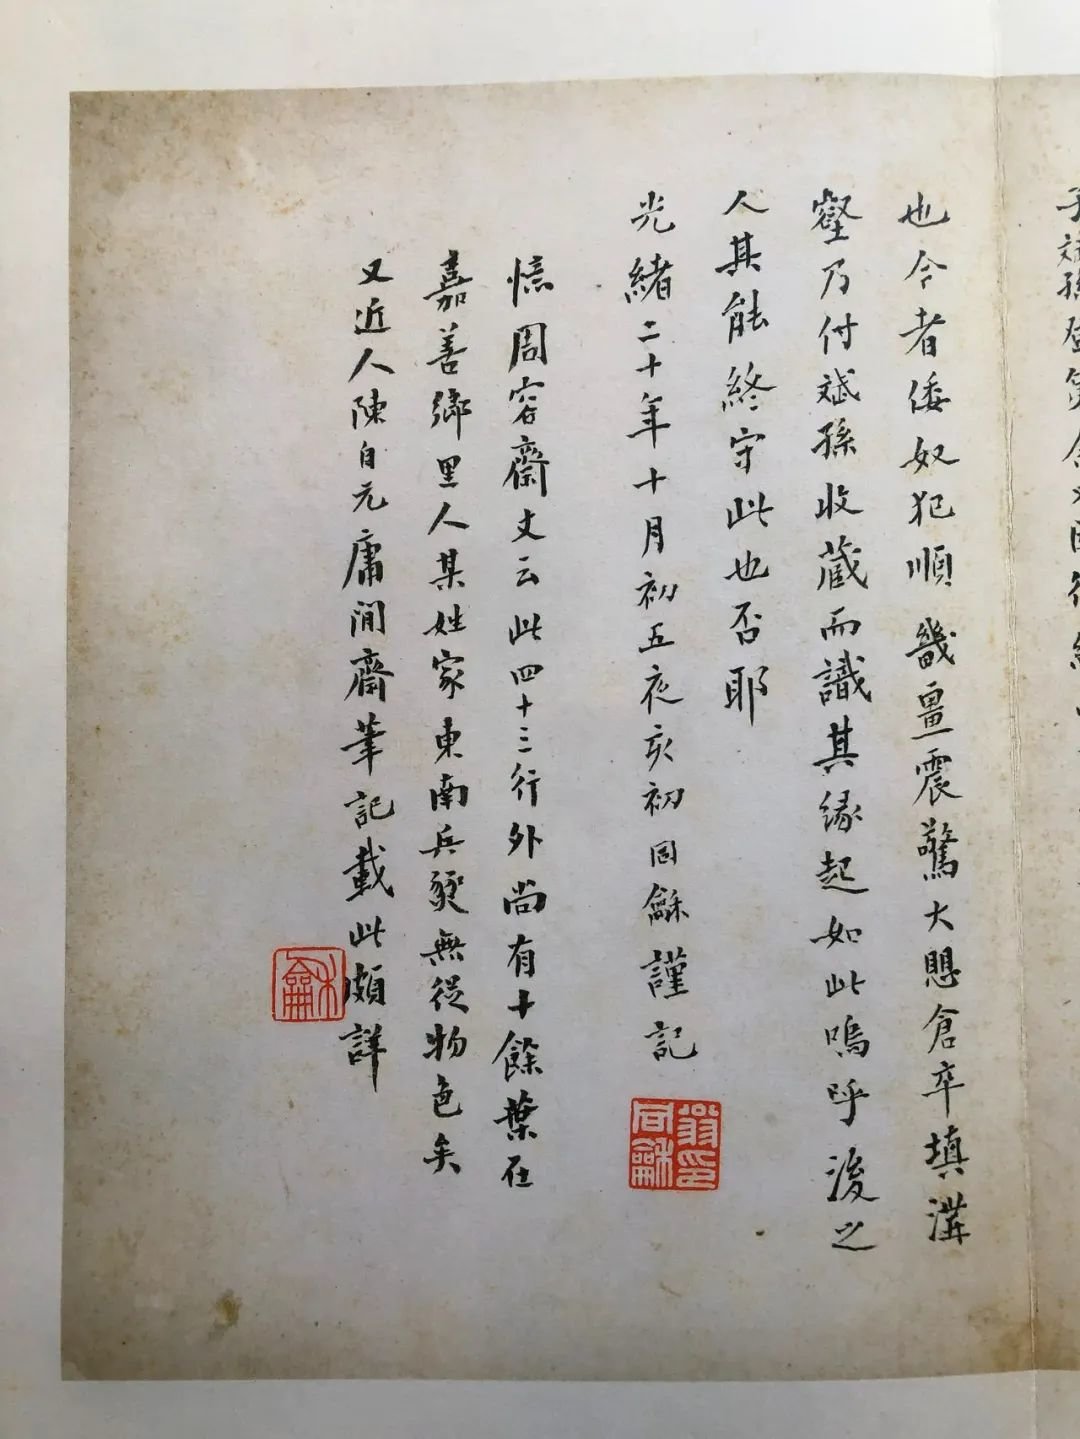 子斌孫
也今者倭奴犯順畿畺震驚大懼倉卒填溝
壑乃付斌孫收藏而識其緣起如此嗚呼後之
人其能終守此也否耶
光緒二十年十月初五夜亥初同龢謹記
憶周容齋丈云此四十三行外尚有十餘葉在
嘉善鄉里人某姓家東南兵燹無從物色矣
又近人陳自元庸閒齋筆記載此頗詳
翁同龢印
龢